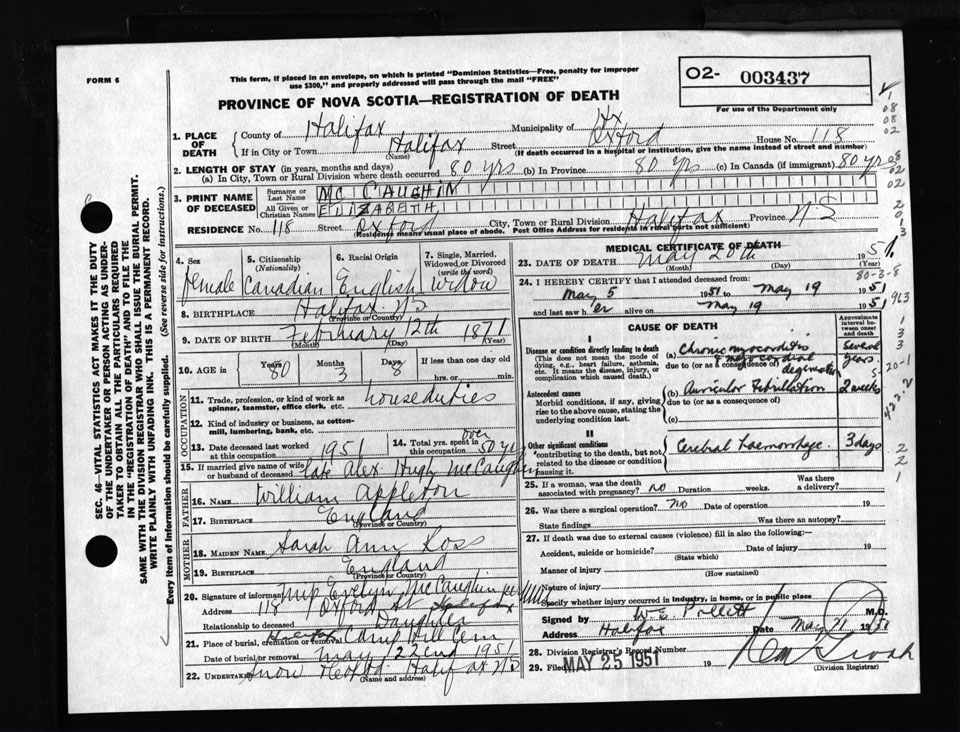 FORM 6
This form, if placed in an envelope, on which is printed "Dominion Statistics—Free, penalty for improper
use $300," and properly addressed will pass through the mail "FREE"
O2- 003437
For use of the Department only
PROVINCE OF NOVA SCOTIA—REGISTRATION OF DEATH
1. PLACE OF DEATH
County of Halifax Municipality of Hx
If in City or Town Halifax Street Oxford House No. 118
(Name) (If death occurred in a hospital or institution, give the name instead of street and number)
2. LENGTH OF STAY (in years, months and days)
(a) In City, Town or Rural Division where death occurred 80 yrs (b) In Province 80 yrs (c) In Canada (if immigrant) 80 yrs
3. PRINT NAME OF DECEASED
Surname or Last Name MC CAUGHIN
All Given or Christian Names ELIZABETH
RESIDENCE No. 118 Street Oxford City, Town or Rural Division Halifax Province NS
(Residence means usual place of abode. Post Office Address for residents in rural parts not sufficient)
4. Sex
female
5. Citizenship (Nationality)
Canadian
6. Racial Origin
English
7. Single, Married, Widowed or Divorced (write the word)
Widow
8. BIRTHPLACE Halifax NS
(Province or Country)
9. DATE OF BIRTH February 12th 1871
(Month) (Day) (Year)
10. AGE in Years 80 Months 3 Days 8 If less than one day old
hrs. or min.
OCCUPATION
11. Trade, profession, or kind of work as
spinner, teamster, office clerk, etc. houseduties
12. Kind of industry or business, as cotton-
mill, lumbering, bank, etc.
13. Date deceased last worked at this occupation 1951
14. Total yrs. spent in this occupation over 50 yrs
15. If married give name of wife or husband of deceased Late Alex Hugh McCaughin
FATHER
16. NAME William Appleton
17. BIRTHPLACE England
(Province or Country)
MOTHER
18. MAIDEN NAME Sarah Ann Ross
19. BIRTHPLACE England
(Province or Country)
20. Signature of informant Evelyn McCaughin
Address 118 Oxford St Halifax
Relationship to deceased Daughter
21. Place of burial, cremation or removal Halifax Camp Hill Cem
Date of burial or removal May 22nd 1951
22. UNDERTAKER Snow Halifax NS
(Name and address)
MEDICAL CERTIFICATE OF DEATH
23. DATE OF DEATH May 20th 1951
(Month) (Day) (Year)
80-3-8
24. I HEREBY CERTIFY that I attended deceased from:
May 5 1951 to May 19 1951
and last saw h er alive on May 19 1951
CAUSE OF DEATH
Approximate interval between onset and death
I
Disease or condition directly leading to death
(This does not mean the mode of dying, e.g., heart failure, asthenia, etc. It means the disease, injury, or complication which caused death.
(a) Chronic myocarditis
& myocardial degeneration
due to (or as a consequence of)
Several years
Antecedent causes
Morbid conditions, if any, giving rise to the above cause, stating the underlying condition last.
(b) Auricular Fibrillation 2 weeks
due to (or as a consequence of)
(c)
II
Other significant conditions
contributing to the death, but not related to the disease or condition causing it.
Cerebral haemorrhage. 3 days
25. If a woman, was the death associated with pregnancy? no Duration weeks. Was there a delivery?
26. Was there a surgical operation? no Date of operation 19
State findings Was there an autopsy?
27. If death was due to external causes (violence) fill in also the following:
Accident, suicide or homicide? Date of injury 19
(State which)
Manner of injury
(How sustained)
Nature of injury
Specify whether injury occurred in industry, in home, or in public place
Signed by M.D.
Address Halifax Date May 1951
28. Division Registrar's Record Number
29. Filed MAY 25 1951 19
(Division Registrar)
SEC. 46—VITAL STATISTICS ACT MAKES IT THE DUTY
OF THE UNDERTAKER OR PERSON ACTING AS UNDER-
TAKER TO OBTAIN ALL THE PARTICULARS REQUIRED
IN THE "REGISTRATION OF DEATH" AND TO FILE THE
SAME WITH THE DIVISION REGISTRAR WHO SHALL ISSUE THE BURIAL PERMIT.
WRITE PLAINLY WITH UNFADING INK. THIS IS A PERMANENT RECORD.
Every item of Information should be carefully supplied. (See reverse side for instructions.)